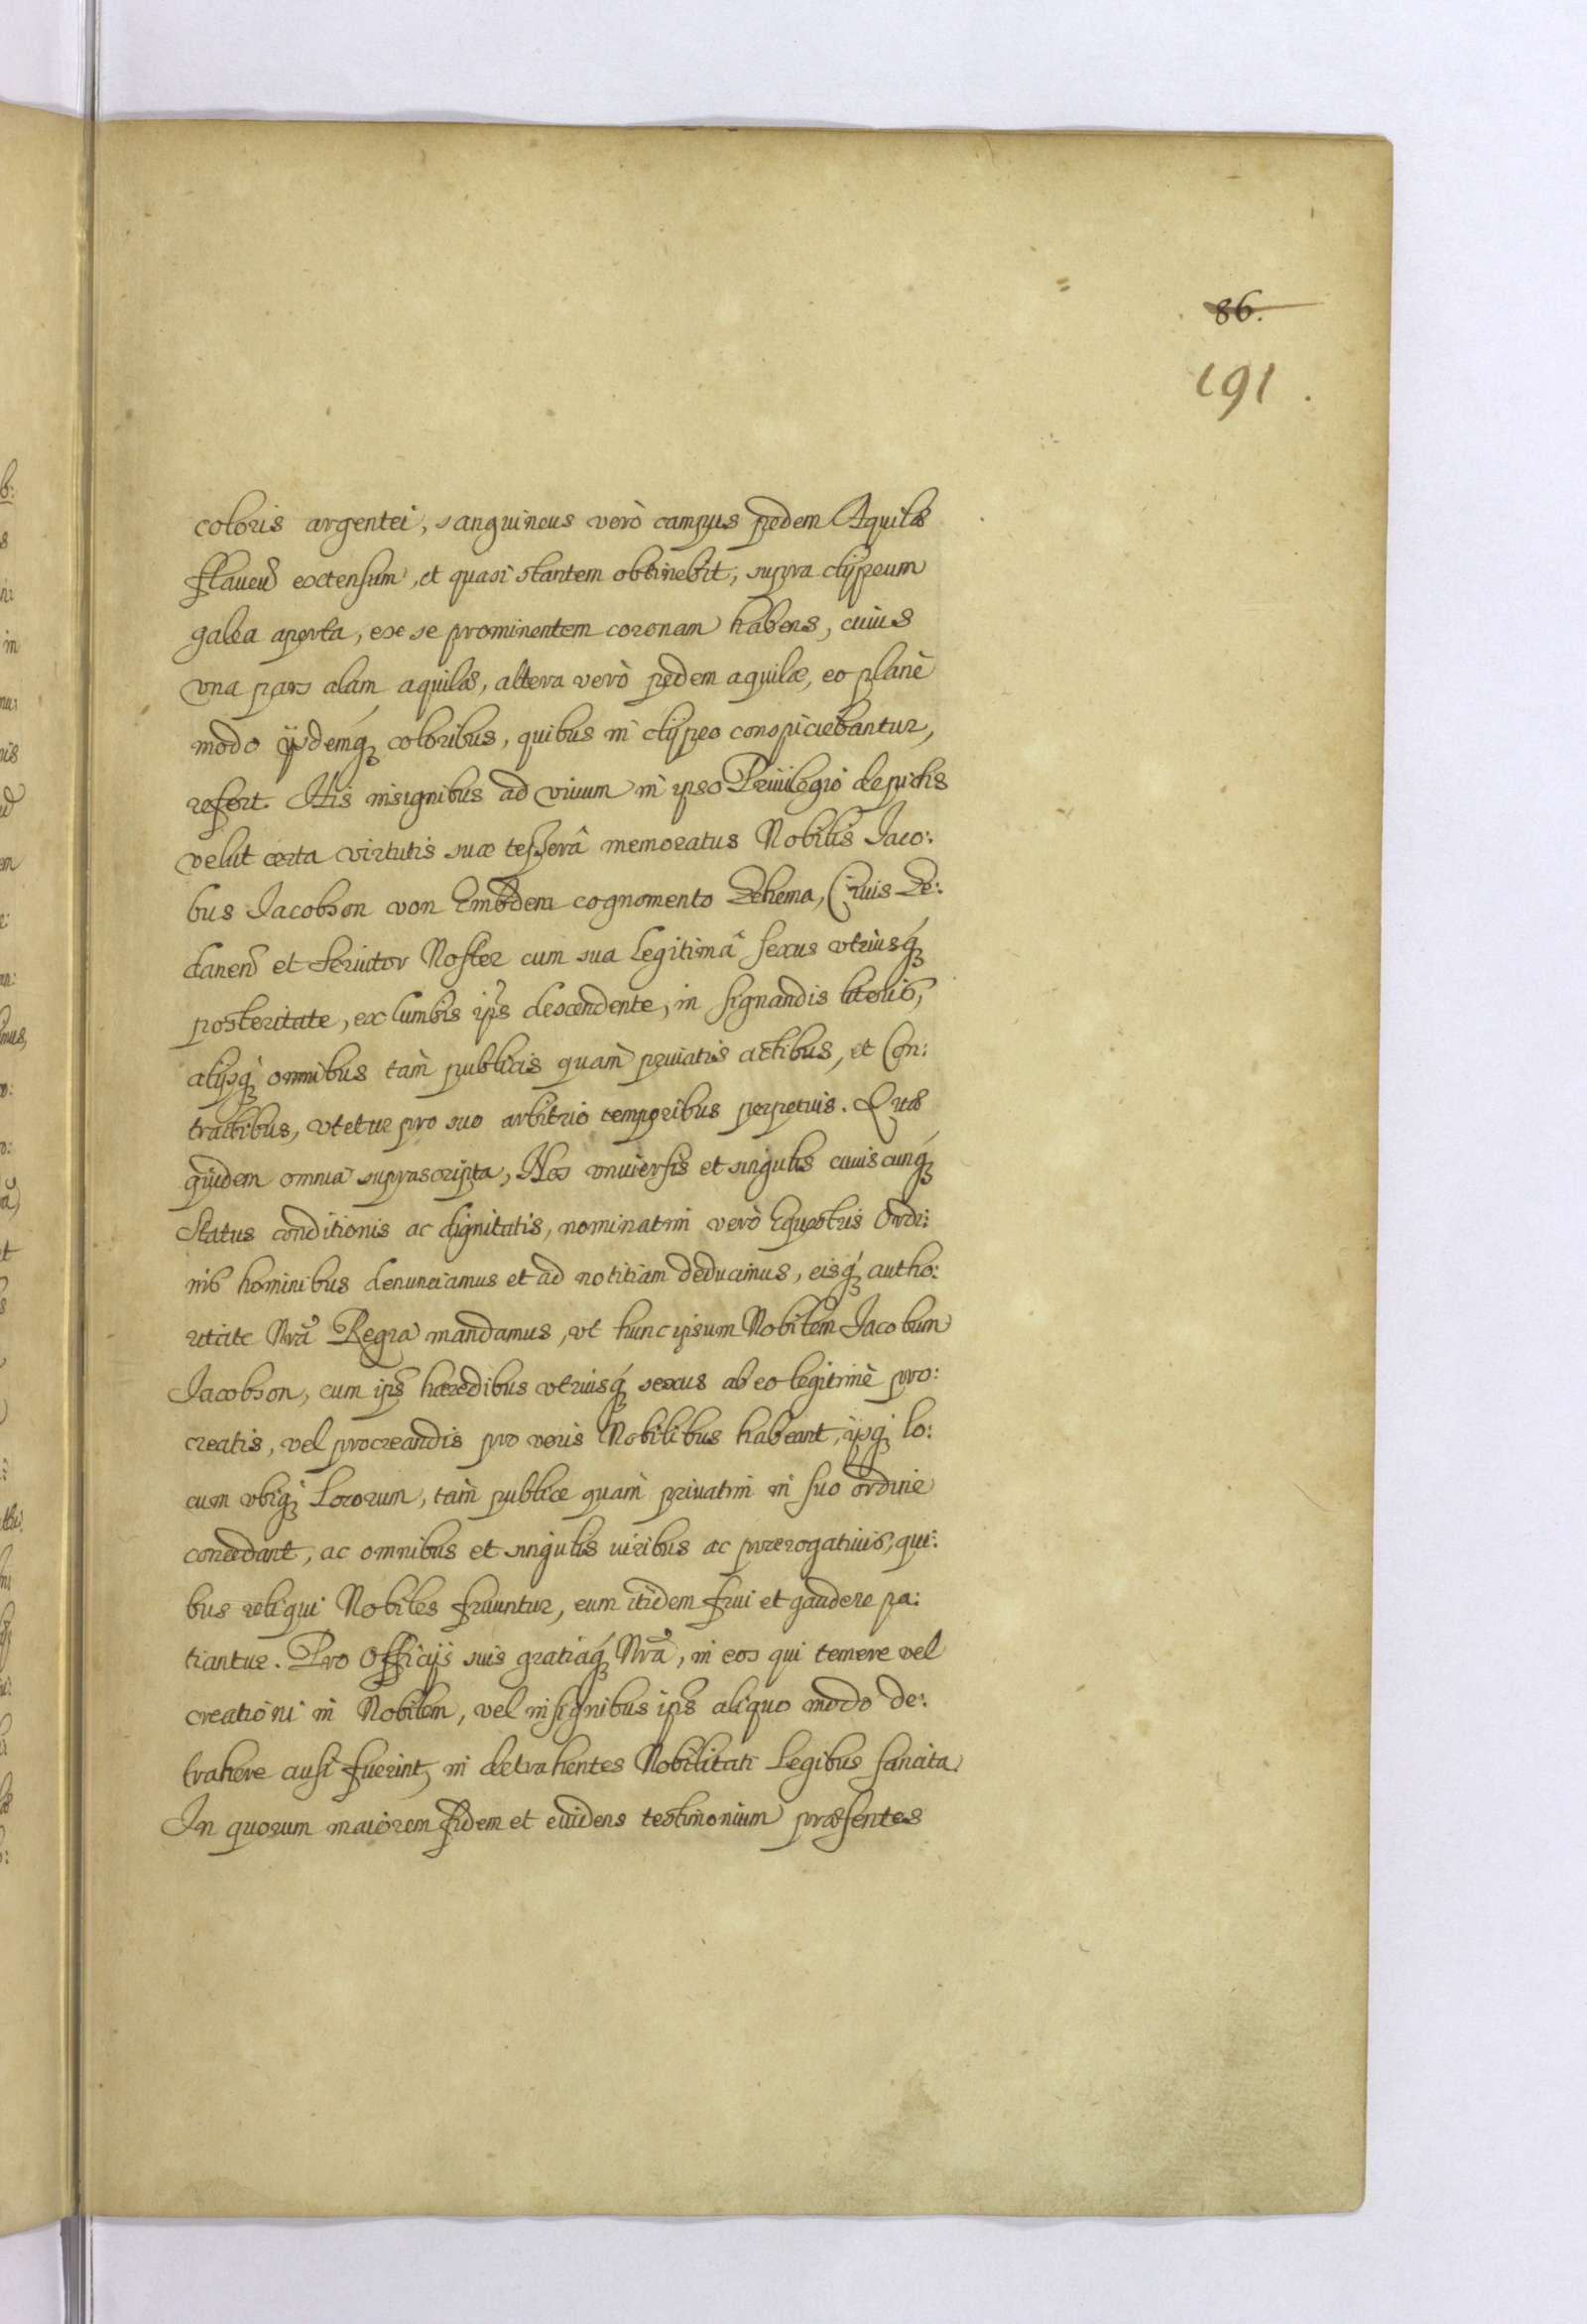 86.
191.
coloris argentei, sanguineus verò campus pedem Aquilæ
flaueũ extensum, et quasi stantem obtinebit, supra clypeum
galea aperta, ex se prominentem coronam habens, cuius
vna pars alam aquilæ, altera verò pedem aquilæ, eo planè
modo ijsdemq́ꝫ coloribus, quibus in clypeo conspiciebantur,
refert. His insignibus ad viuum in ipso Priuilegio depictis
velut certa virtutis suæ tesserâ memoratus Nobilis Iaco:
bus Iacobson von Embdem cognomento Dehema, Ciuis Ge:
danen̄ et Seruitor Noster cum sua legitimâ sexus vtriusq́ꝫ
posteritate, ex lumbis ip̄s descendente, in signandis literis,
alijsq́ꝫ omnibus tàm publicis quàm priuatis actibus, et Con:
tractibus, vtetur pro suo arbitrio temporibus perpetuis. Quæ
quidem omnia suprascripta, Nos vniuersis et singulis cuiuscunq́ꝫ
status conditionis ac dignitatis, nominatim verò Equestris Ordi:
nis hominibus denunciamus et ad notitiam deducimus, eisq́ꝫ autho:
ritate Nrã Regia mandamus, vt hunc ipsum Nobilem Iacobum
Iacobson, cum ip̄s hæredibus vtriusq́ꝫ sexus ab eo legitimè pro:
creatis, vel procreandis pro veris Nobilibus habeant, ijsq́ꝫ lo:
cum vbiqꝫ Locorum, tàm publice quàm priuatim in suo ordine
concedant, ac omnibus et singulis iuribus ac prærogatiuis, qui:
bus reliqui Nobiles fruuntur, eum itidem frui et gaudere pa:
tiantur. Pro Officijs suis gratiaq́ꝫ Nrã, in eos qui temere vel
creationi in Nobilem, vel insignibus ip̄s aliquo modo de:
trahere ausi fuerint, in detrahentes Nobilitati Legibus sancita.
In quorum maiorem fidem et euidens testimonium præsentes